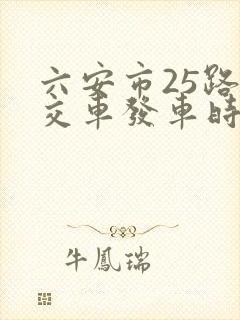 六安市25路
交車發車時
牛鳳瑞